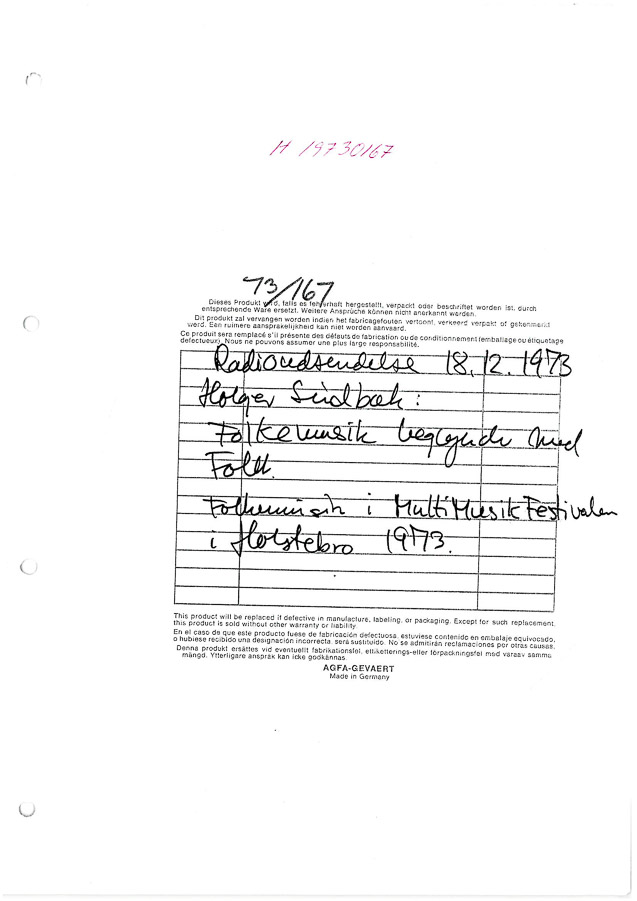 H 19730167
73/167
Dieses Produkt wird, falls es fehlerhaft hergestellt, verpackt oder beschriftet worden ist, durch
entsprechende Ware ersetzt. Weitere Ansprüche können nicht anerkannt werden.
Dit produkt zal vervangen worden indien het fabricagefouten vertoont, verkeerd verpakt of gekenmerkt
werd. Een ruimere aansprakelijkheid kan niet worden aanvaard.
Ce produit sera remplacé s'il présente des défauts de fabrication ou de conditionnement (emballage ou étiquetage
defectueux). Nous ne pouvons assumer une plus large responsabilité.
Radioudsendelse 18.12.1973
Holger Sindbæk:
Folkemusik begynder med
Folk.
Folkemusik i MultiMusikFestivalen
i Holstebro 1973.
This product will be replaced if defective in manufacture, labeling, or packaging. Except for such replacement,
this product is sold without other warranty or liability.
En el caso de que este producto fuese de fabricación defectuosa, estuviese contenido en embalaje equivocado,
o hubiese recibido una designación incorrecta, será sustituido. No se admitirán reclamaciones por otras causas.
Denna produkt ersättes vid eventuellt fabrikationsfel, etiketterings-eller förpackningsfel med varaav samma
mängd. Ytterligare ansprak kan icke godkännas.
AGFA-GEVAERT
Made in Germany